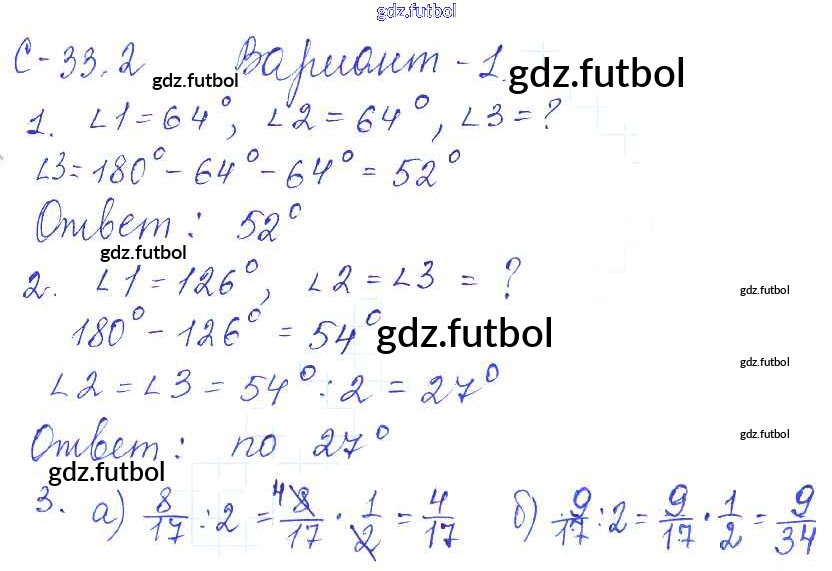 gdz.futbol
С-33.2 Вариант-1.
gdz.futbol gdz.futbol
1. ∠1=64°, ∠2=64°, ∠3=?
∠3=180°-64°-64°=52°
Ответ: 52°
gdz.futbol
2. ∠1=126°, ∠2=∠3=?
gdz.futbol
180°-126°=54°
gdz.futbol
gdz.futbol
∠2=∠3=54°:2=27°
Ответ: по 27°
gdz.futbol
gdz.futbol
3. а) 8/17:2=⁴8/17·1/2=4/17 б) 9/17:2=9/17·1/2=9/34